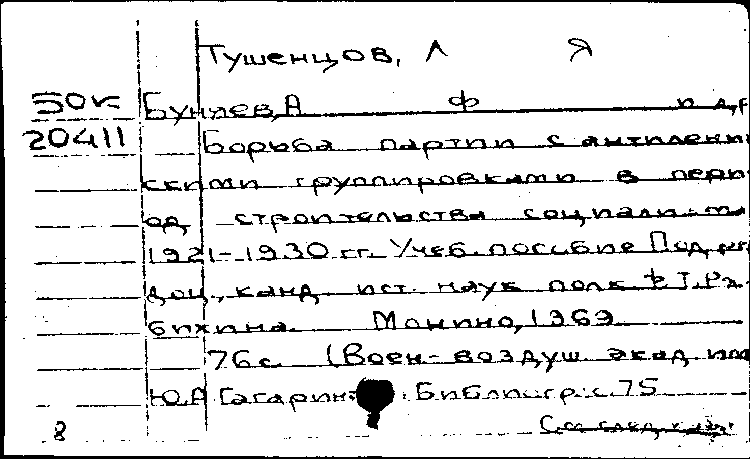 Тушенцов, Л Я
50к Буняев, А Ф и др
20411 Борьба партии с антиленин
скими группировками в пери
од строительства социализма
1921-1930 гг. Учеб. пособие Под ред
доц., канд. ист. наук полк Ф Т. Рж
бихина. Монино, 1969
76 с. (Воен-воздуш акад им
Ю.А Гагарина). Библиогр: с. 75
8 См след. карт